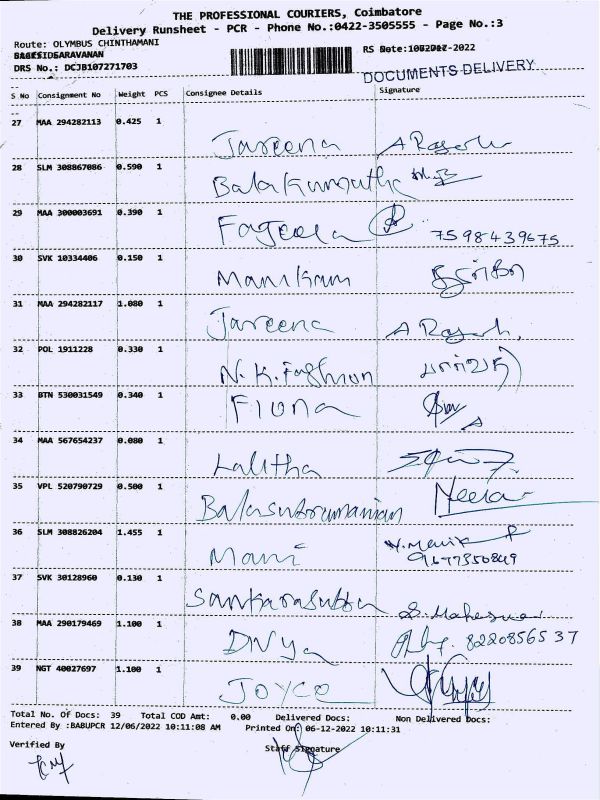 THE PROFESSIONAL COURIERS, Coimbatore
Delivery Runsheet - PCR - Phone No.:0422-3505555 - Page No.:3
Route: OLYMBUS CHINTHAMANI
DRS No.: DCJB107271703
DOCUMENTS DELIVERY
S No Consignment No Weight PCS Consignee Details Signature
27 MAA 294282113 0.425 1 Jareena A Rajesh
28 SLM 308867086 0.590 1 Balakumutha
29 MAA 300003691 0.390 1 Fageela 7598439675
30 SVK 10334406 0.150 1 Manikam
31 MAA 294282117 1.080 1 Jareena A Rajesh.
32 POL 1911228 0.330 1 N.K.Fashion
33 BTN 530031549 0.340 1 Fiona
34 MAA 567654237 0.080 1 Lalitha
35 VPL 520790729 0.500 1 Balasubramanian Neela
36 SLM 308826204 1.455 1 Mani
9677350849
37 SVK 30128960 0.130 1 Sankarasubbu
38 MAA 290179469 1.100 1 Divya 8220856537
39 NGT 40027697 1.100 1 Joyce
Total No. Of Docs: 39 Total COD Amt: 0.00 Delivered Docs: Non Delivered Docs:
Entered By :BABUPCR 12/06/2022 10:11:08 AM Printed On: 06-12-2022 10:11:31
Verified By Staff Signature